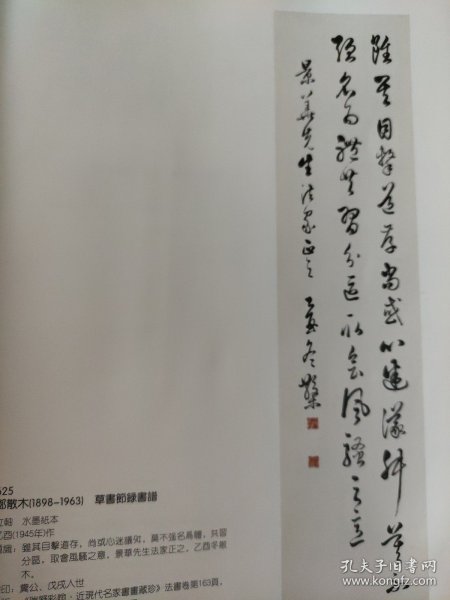 雖其目擊道存尚或心迷議舛莫不
强名為體共習分區取會風騷之意
景華先生法家正之 乙酉冬散木
625
鄧散木(1898-1963) 草書節録書譜
立軸 水墨紙本
乙酉(1945年)作
題識：雖其自擊道存，尚或心迷議舛，莫不强名爲體，共習
分區，取會風騷之意，景華先生法家正之，乙酉冬散
木。
鈐印：糞公、戊戌人世
近現代名家書畫藏珍》法書卷第163頁，
孔夫子旧书网